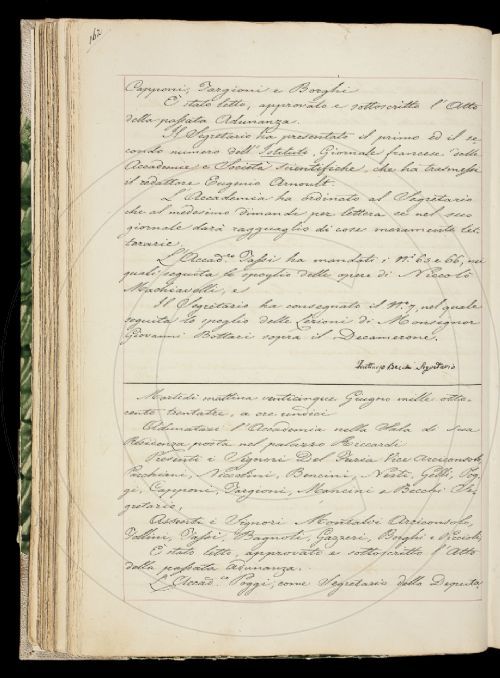 162
Capponi, Targioni e Borghi
È stato letto, approvato e sottoscritto l'Atto
della passata Adunanza.
Il Segretario ha presentato il primo ed il se-
condo numero dell'Istituto, Giornale francese delle
Accademie e Società scientifiche, che ha trasmesse
il redattore Eugenio Arnoult.
L'Accademia ha ordinato al Segretario
che al medesimo dimandi per lettera se nel suo
giornale darà ragguaglio di cose meramente let-
terarie.
L'Accad.co Tassi ha mandati i N.i 65 e 66, ne'
quali seguita lo spoglio delle opere di Niccolò
Machiavelli, e
Il Segretario ha consegnato il N.o 7, nel quale
seguita lo spoglio delle Lezioni di Monsignor
Giovanni Bottari sopra il Decamerone.
Fruttuoso Becchi Segretario
Martedì mattina venticinque Giugno mille otto-
cento trentatre, a ore undici
Adunatasi l'Accademia nella Sala di Sua
Residenza posta nel palazzo Riccardi
Presenti i Signori Del Furia Vice Arciconsolo,
Pacchiani, Niccolini, Bencini, Nesti, Gelli, Pog-
gi, Capponi, Targioni, Mancini e Becchi Se-
gretario,
Assenti i Signori Montalvi Arciconsolo,
Follini, Tassi, Bagnoli, Gazzeri, Borghi e
È stato letto, approvato e sottoscritto l'Atto
della passata Adunanza.
L'Accad.co Poggi, come Segretario della Deputa